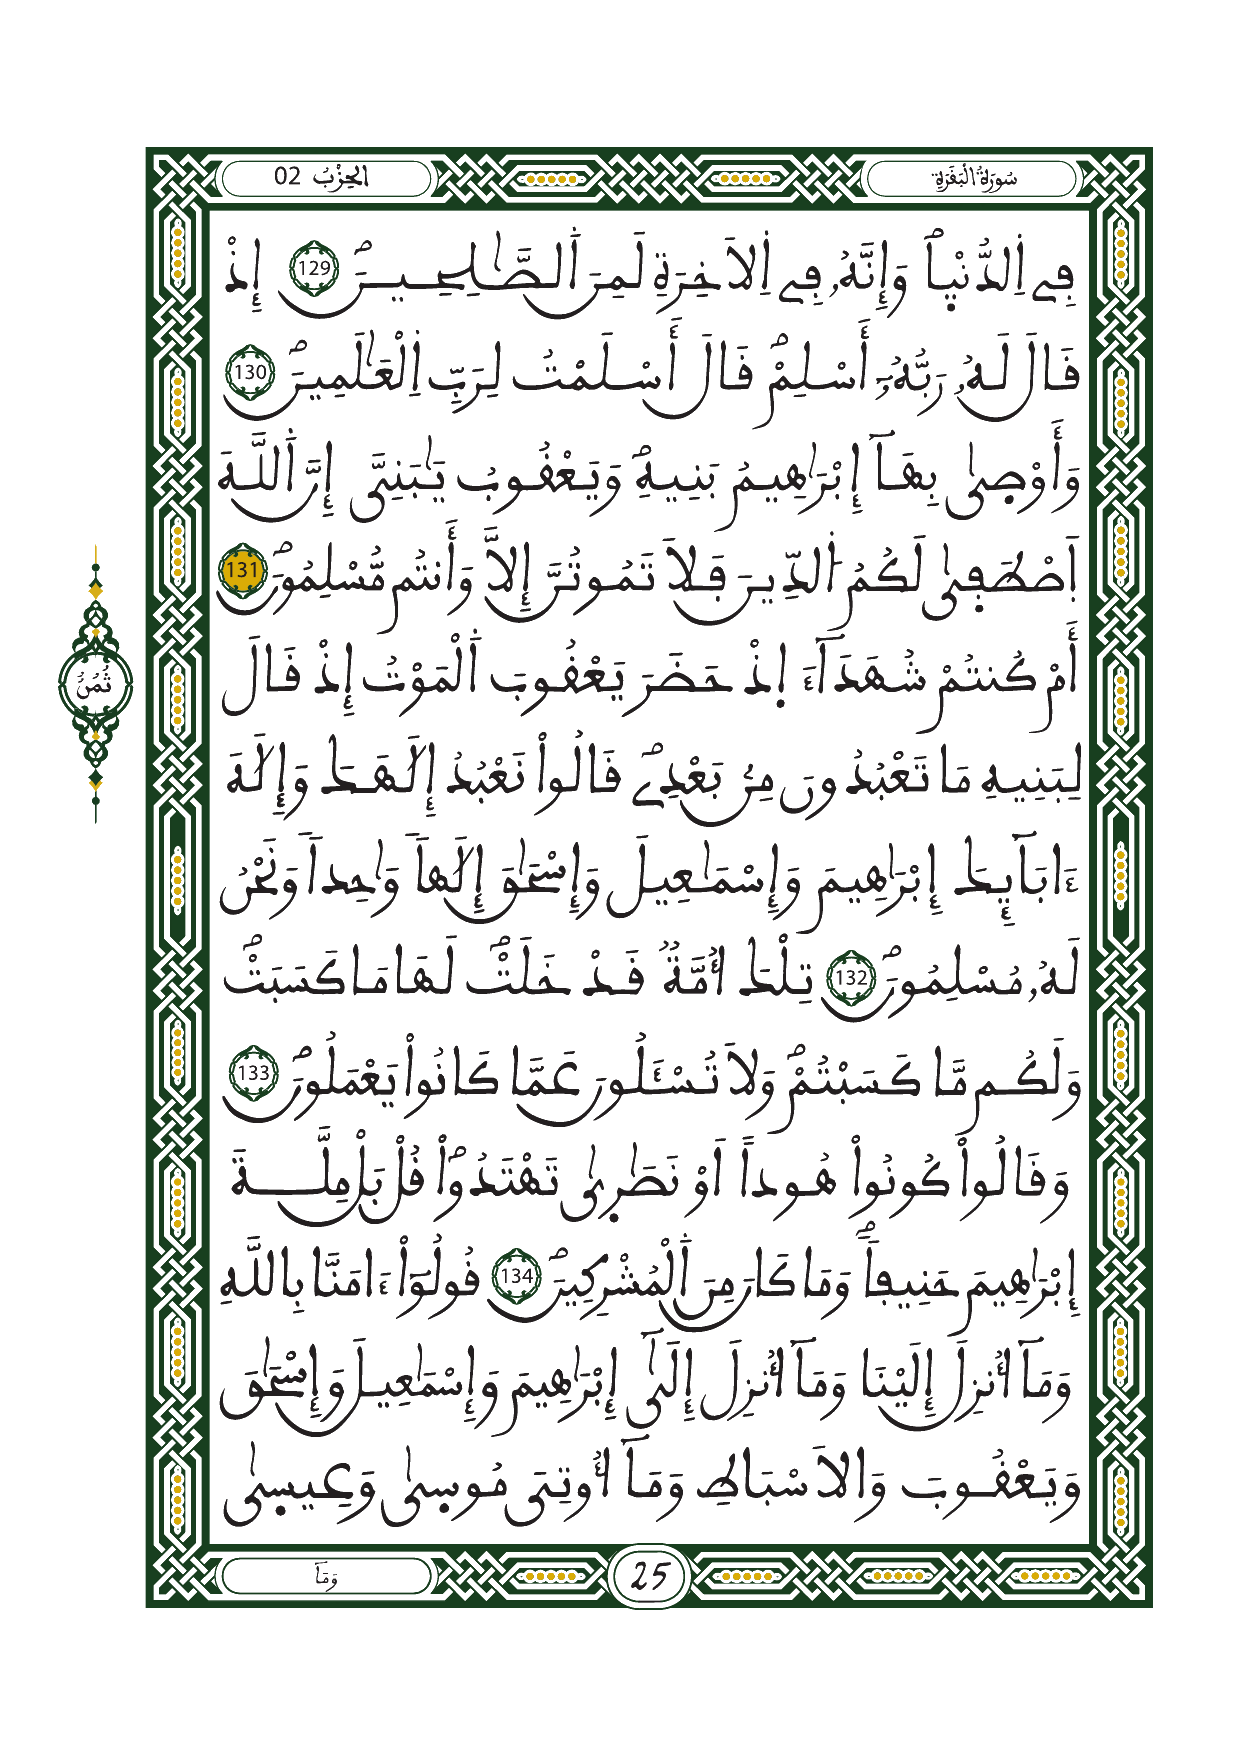 سُورَةُ الْبَقَرَةِ
الحِزْبُ 02
فِے اِ۬لدُّنْي۪اۖ وَإِنَّهُۥ فِے اِ۬لَاخِرَةِ لَمِنَ اَ۬لصَّٰلِحِينَۖ 129 إِذْ
قَالَ لَهُۥ رَبُّهُۥٓ أَسْلِمْۖ قَالَ أَسْلَمْتُ لِرَبِّ اِ۬لْعَٰلَمِينَۖ 130
وَأَوْص۪ىٰ بِهَآ إِبْرَٰهِيمُ بَنِيهِۖ وَيَعْقُوبُ يَٰبَنِىَّ إِنَّ اَ۬للَّهَ
اَ۪صْطَف۪ىٰ لَكُمُ اُ۬لدِّينَ فَلَا تَمُوتُنَّ إِلَّا وَأَنتُم مُّسْلِمُونَۖ 131
أَمْ كُنتُمْ شُهَدَآءَ اِ۪ذْ حَضَرَ يَعْقُوبَ اَ۬لْمَوْتُ إِذْ قَالَ
لِبَنِيهِ مَا تَعْبُدُونَ مِنۢ بَعْدِےۖ قَالُواْ نَعْبُدُ إِلَٰهَكَ وَإِلَٰهَ
ءَابَآئِكَ إِبْرَٰهِيمَ وَإِسْمَٰعِيلَ وَإِسْحَٰقَ إِلَٰهاٗ وَٰحِداٗ وَنَحْنُ
لَهُۥ مُسْلِمُونَۖ 132 تِلْكَ أُمَّةٞ قَدْ خَلَتْۖ لَهَا مَا كَسَبَتْۖ
وَلَكُم مَّا كَسَبْتُمْۖ وَلَا تُسْـَٔلُونَ عَمَّا كَانُواْ يَعْمَلُونَۖ 133
وَقَالُواْ كُونُواْ هُوداً اَوْ نَصَٰر۪ىٰ تَهْتَدُواْۖ قُلْ بَلْ مِلَّةَ
إِبْرَٰهِيمَ حَنِيفاٗۖ وَمَا كَانَ مِنَ اَ۬لْمُشْرِكِينَۖ 134 قُولُوٓاْ ءَامَنَّا بِاللَّهِ
وَمَآ أُنزِلَ إِلَيْنَا وَمَآ أُنزِلَ إِلَىٰٓ إِبْرَٰهِيمَ وَإِسْمَٰعِيلَ وَإِسْحَٰقَ
وَيَعْقُوبَ وَالَاسْبَاطِ وَمَآ أُوتِىَ مُوس۪ىٰ وَعِيس۪ىٰ
ثُمُنُ
وَمَآ
25